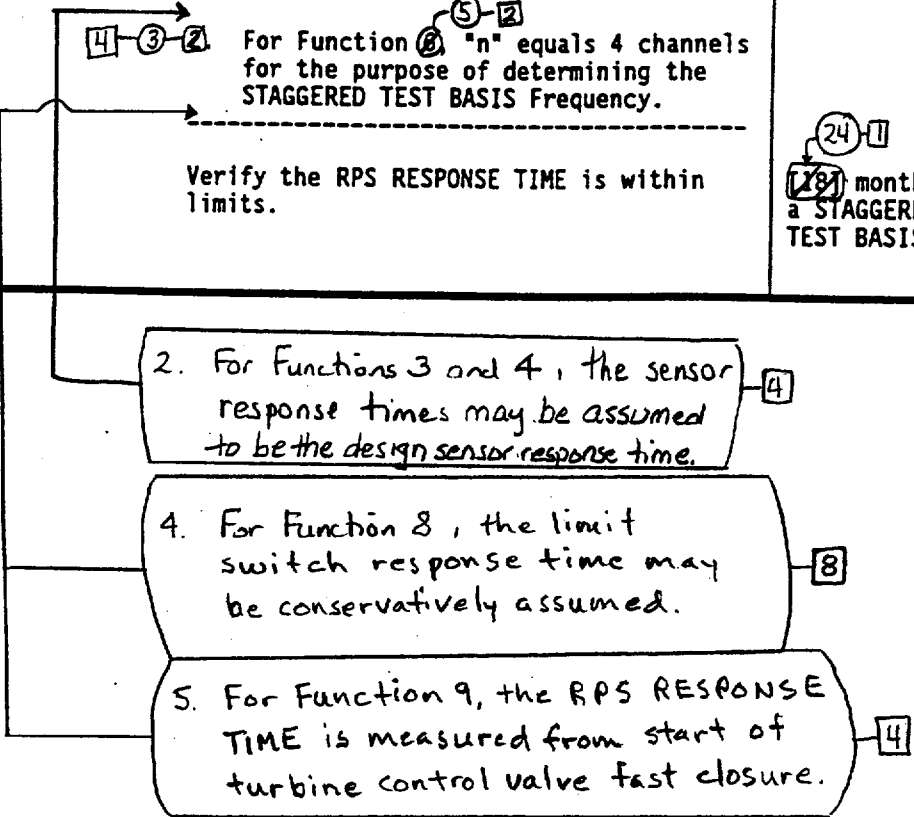 5 2
4 3 2. For Function 6, "n" equals 4 channels
for the purpose of determining the
STAGGERED TEST BASIS Frequency.
24 1
Verify the RPS RESPONSE TIME is within
limits.
[18] month
a STAGGER
TEST BASIS
2. For Functions 3 and 4, the sensor
response times may be assumed
to be the design sensor response time.
4
4. For Function 8, the limit
switch response time may
be conservatively assumed.
8
5. For Function 9, the RPS RESPONSE
TIME is measured from start of
turbine control valve fast closure.
4